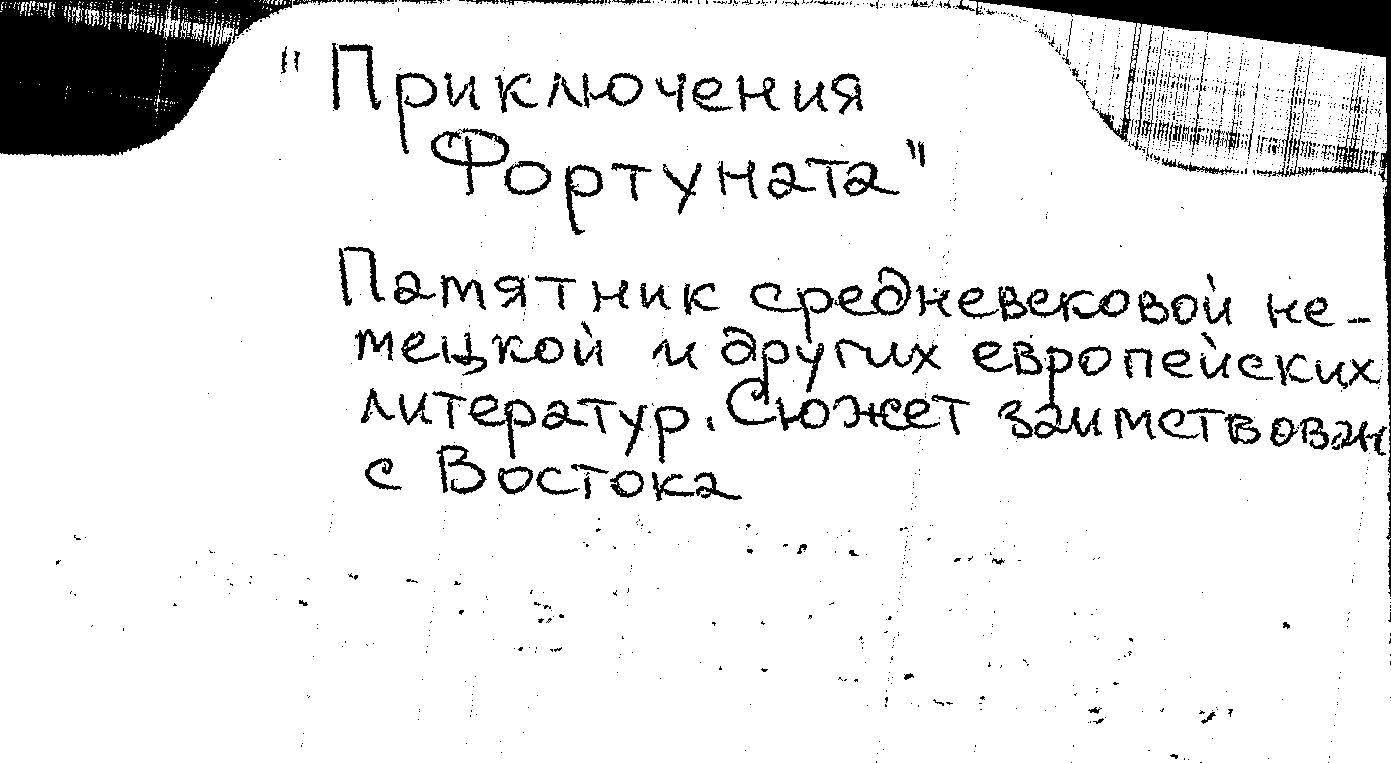 "Приключения
Фортуната"
Памятник средневековой не-
мецкой и других европейских
литератур. Сюжет заимствован
с Востока